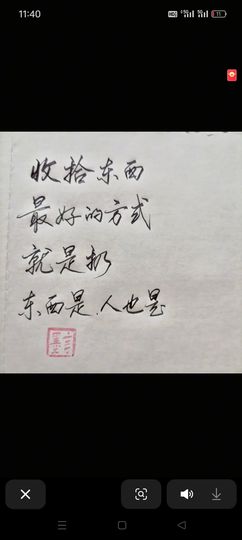 11:40
收拾东西
最好的方式
就是扔
东西是.人也是